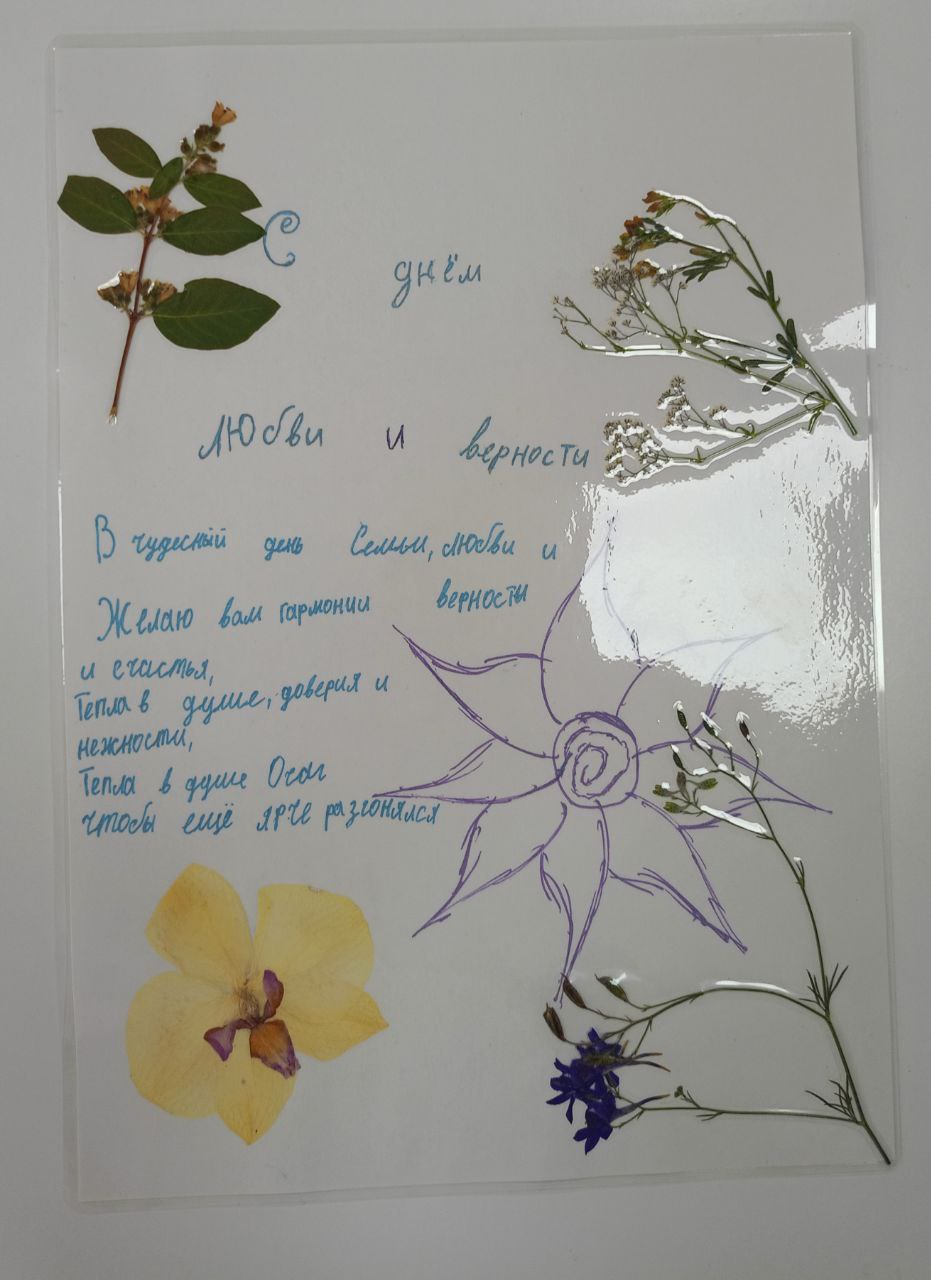 С днём
любви и верности
В чудесный день Семьи, любви и
верности
Желаю вам гармонии
и счастья,
Тепла в душе, доверия и
нежности,
Тепла в душе Очаг
чтобы ещё ярче разгонялся